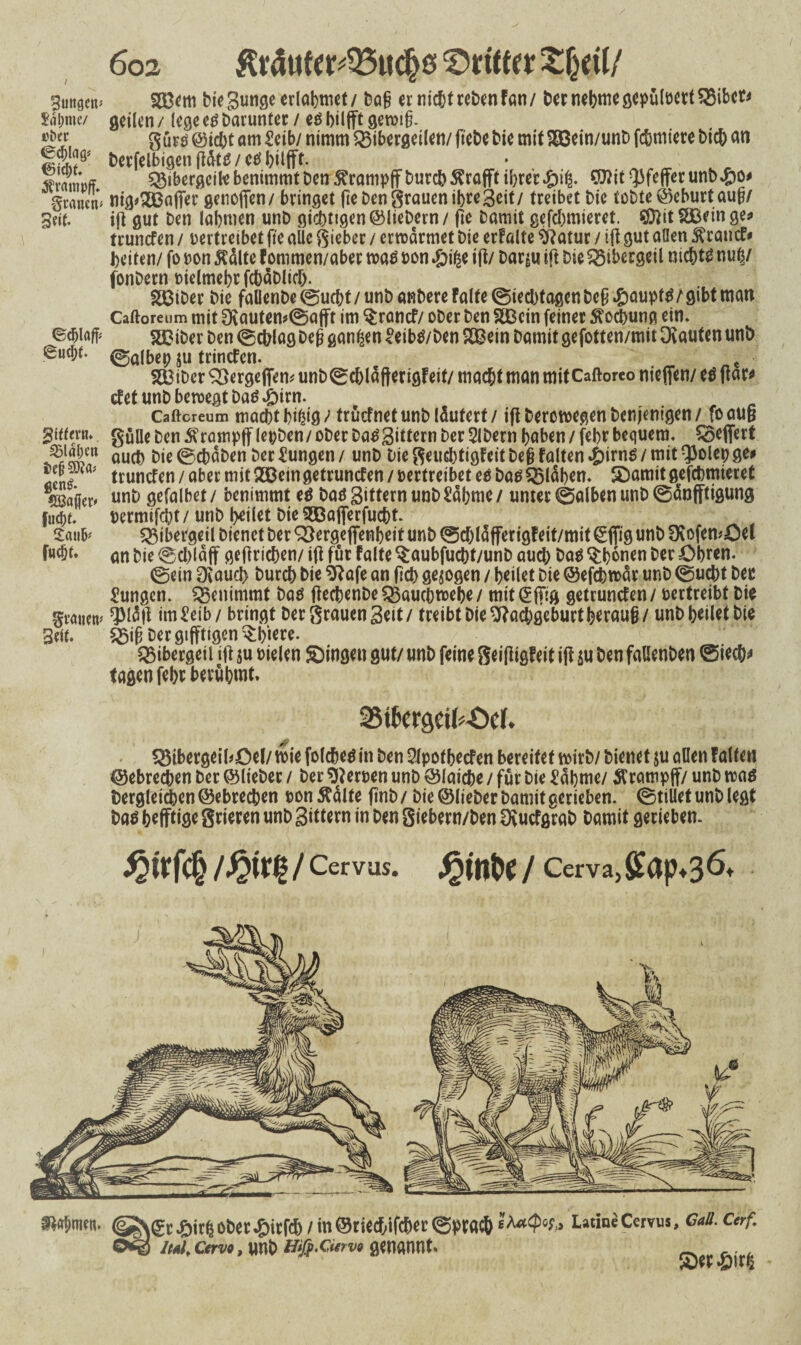 602 Kräuter-Buchs Dritter Theil/
Zungen-
Lähme/
oder
Schlag-
Gicht.
Krampff.
Frauen-
Zeit.
Wem die Zunge erlahmet/ daß er nicht reden kan/ der nehme gepülvert Biber-
geilen/ lege es darunter/ es hilfft gewiß.
Fürs Gicht am Leib/ nimm Bibergeilen/ siede die mit Wein/ und schmiere dich an
derselbigen stäts/ es hilfft.
Bibergeile benimmt den Krampff durch Krafft ihrer Hitz. Mit Pfeffer und Ho-
nig-Wasser genossen/ bringet sie den Frauen ihre Zeit/ treibet die todte Geburt auß/
ist gut den lahmen und gichtigen Gliedern/ sie damit geschmieret. Mit Wein ge-
truncken/ vertreibet sie alle Fieber/ erwärmet die erkalte Natur/ ist gut allen Kranck-
heiten/ so von Kälte kommen/ aber was von Hitze ist/ darzu ist die Bibergeil nichts nutz/
sondern vielmehr schädlich.
Wider die fallende Sucht/ und andere kalte Siechtagen deß Haupts/ gibt man
Castoreum mit Rauten-Safft im Tranck/ oder den Wein seiner Kochung ein.
Schlaff-
Sucht.
Wider den Schlag deß gantzen Leibs/ den Wein damit gesotten/ mit Rauten und
Salbey zu trincken.
Wider Vergessen- und Schläfferigkeit/ macht man mit Castoreo niessen/ es stär-
cket und bewegt das Hirn.
Castoreum macht hitzig/ trücknet und läutert/ ist derowegen denjenigen/ so auß
Zittern.
Blähen
deß Ma-
gens.
Wasser-
sucht.
Taub-
sucht.
Fülle den Krampff leyden/ oder das Zittern der Adern haben/ sehr bequem. Bessert
auch die Schäden der Lungen/ und die Feuchtigkeit deß kalten Hirns/ mit Poley ge-
truncken/ aber mit Wein getruncken/ vertreibet es das Blähen. Damit geschmieret
und gesalbet/ benimmt es das Zittern und Lähme/ unter Salben und Sänfftigung
vermischt/ und heilet die Wassersucht.
Bibergeil dienet der Vergessenheit und Schläfferigkeit/ mit Essig und Rosen-Oel
an die Schläff gestrichen/ ist für kalte Taubsucht/ und auch das Thönen der Ohren.
Sein Rauch durch die Nase an sich gezogen/ heilet die Geschwär und Sucht der
Lungen. Benimmt das stechende Bauchwehe/ mit Essig getruncken/ vertreibt die
Frauen-
Zeit.
Pläst im Leib/ bringt der Frauen Zeit/ treibt die Nachgeburt herauß/ und heilet die
Biß der gifftigen Thiere.
Bibergeil ist zu vielen Dingen gut/ und seine Feistigkeit ist zu den fallenden Siech-
tagen sehr berühmt.
Bibergeil-Oel.
Bibergeil-Oel/ wie solches in den Apothecken bereitet wird/ dienet zu allen kalten
Gebrechen der Glieder/ der Nerven und Glaiche/ für die Lähme/ Krampff/ und was
dergleichen Gebrechen von Kälte sind/ die Glieder damit gerieben. Stillet und legt
das hefftige Frieren und Zittern in den Fiebern/ den Ruckgrad damit gerieben.
Hirsch/ Hirtz/ Cervus. Hinde/ Cerva, Cap. 36.
Nahmen.
Der Hirtz oder Hirsch/ in Griechischer Sprach ἔλαφος, Latinè Cervus, Gall. Cerf.
Ital. Cervo, und Hisp. Ciervo genannt.
Der Hirtz